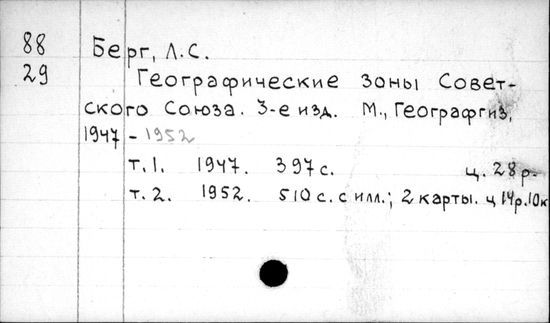 88 Берг, Л.С.
29 Географические зоны Совет-
ского Союза. 3-е изд. М., Географгиз,
1947 - 1952
т.1. 1947. 397 с. ц. 28 р.
т.2. 1952. 510 с. с илл.; 2 карты. ц 14р.10к